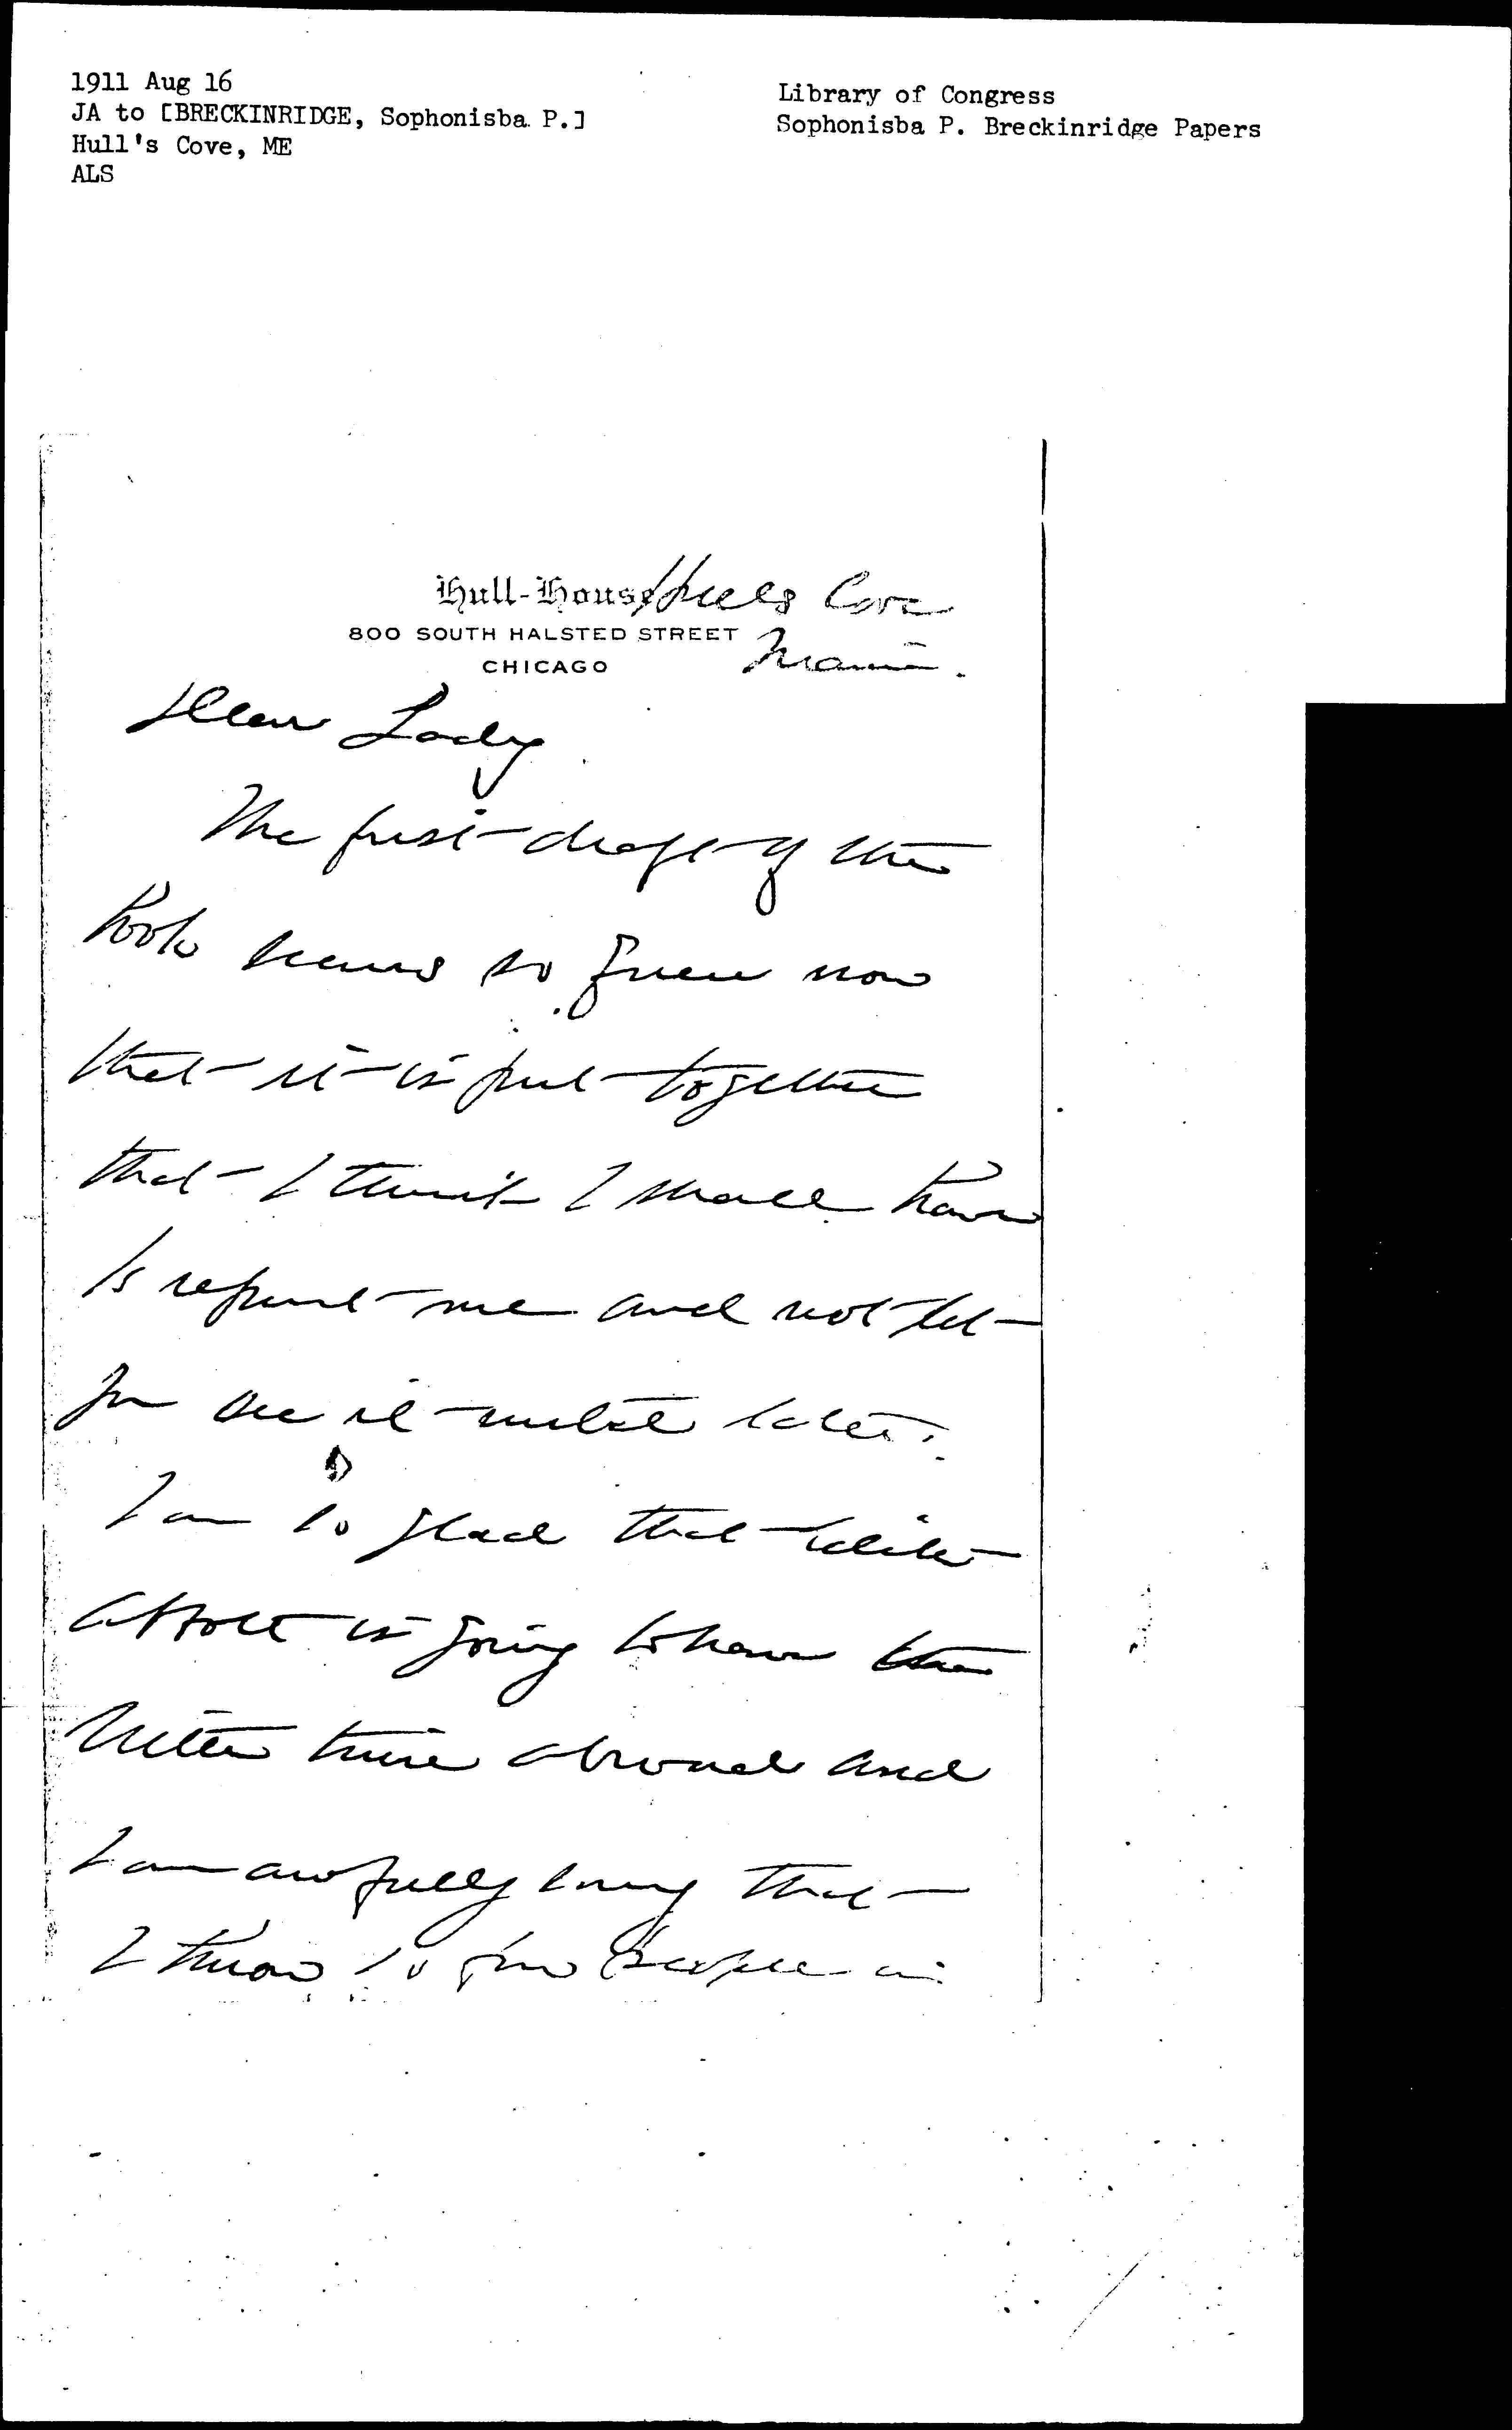 1911 Aug 16
JA to [BRECKINRIDGE, Sophonisba P.]
Hull's Cove, ME
ALS
Library of Congress
Sophonisba P. Breckinridge Papers
Hull-House Hulls Cove
800 SOUTH HALSTED STREET Maine.
CHICAGO
Dear Lady
The first draft of the
book seems so queer now
that it is put together
that I think I shall have
to repent me and not let
you see it until later.
I am so glad that Edith
Abbott is going to have the
better time abroad and
I am awfully sorry that
I know so few people in